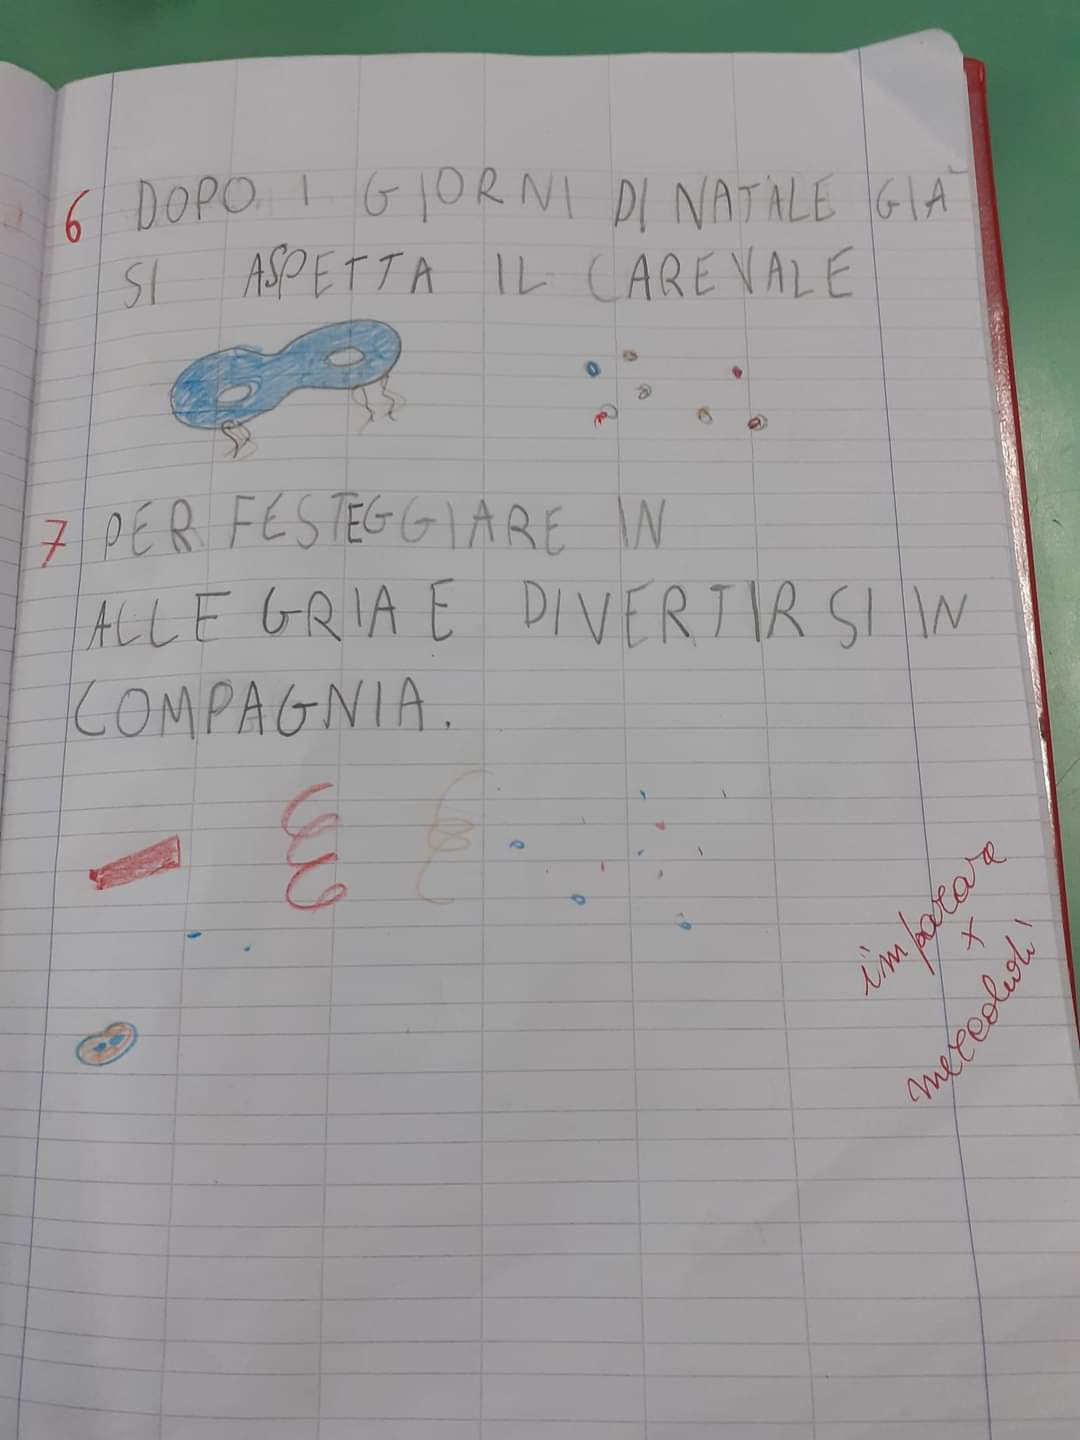 6 DOPO I GIORNI DI NATALE GIÀ
SI ASPETTA IL CAREVALE
7 PER FESTEGGIARE IN
ALLEGRIA E DIVERTIRSI IN
COMPAGNIA.
imparare
x
mercoledì